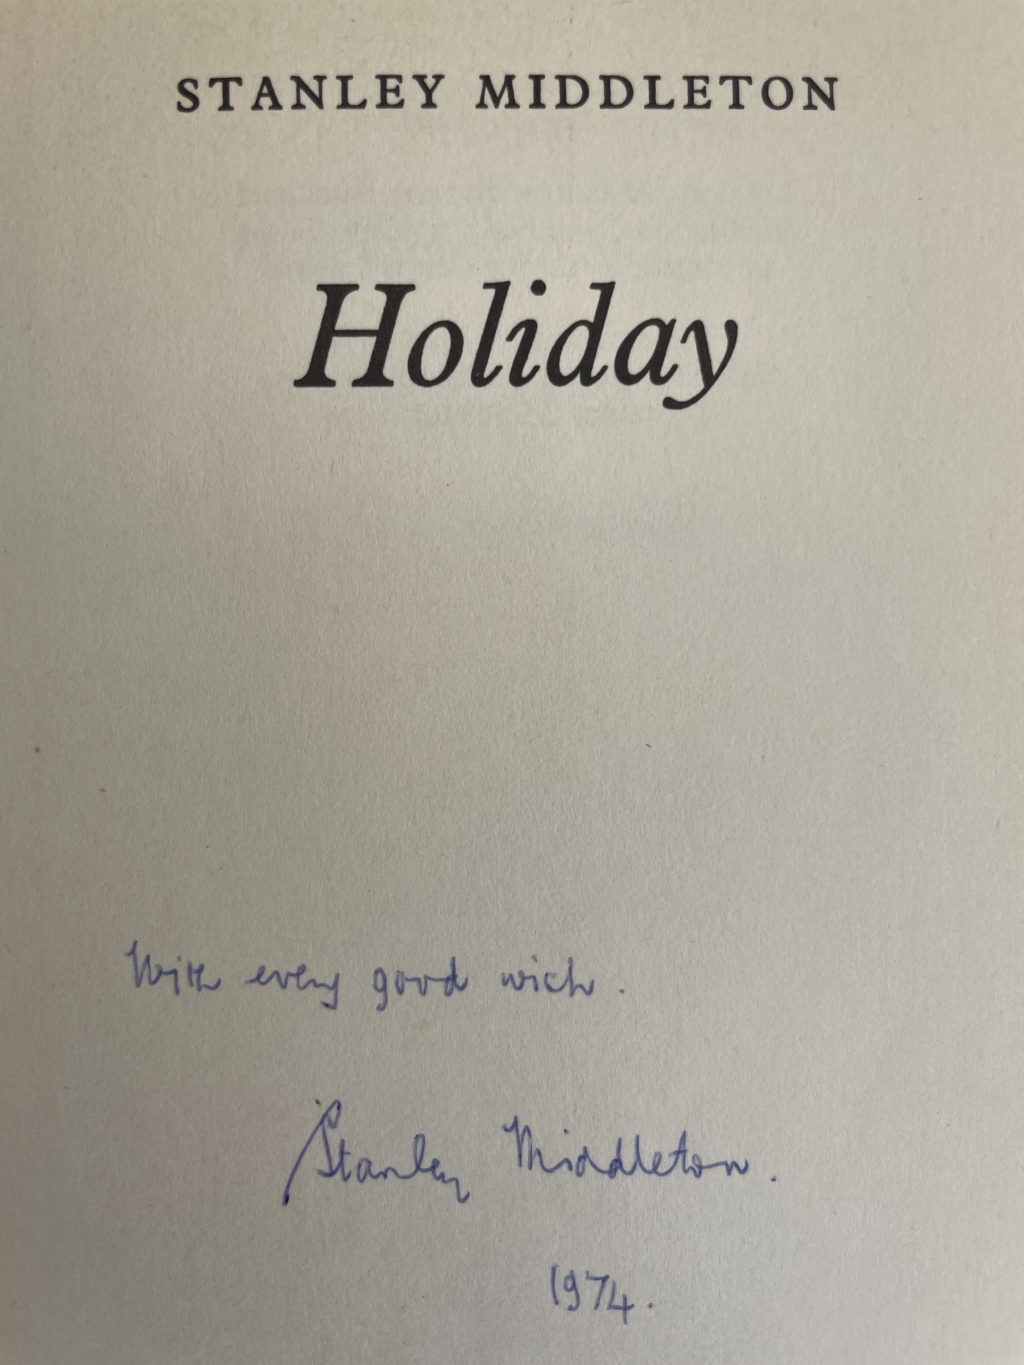 STANLEY MIDDLETON
Holiday
With every good wish.
Stanley Middleton.
1974.